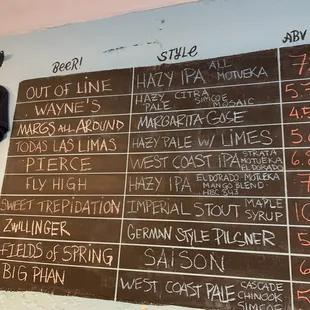 BEER! STYLE ABV
OUT OF LINE HAZY IPA ALL MOTUEKA 7
WAYNE'S HAZY CITRA PALE SIMCOE MOSAIC 5.
MARGS ALL AROUND MARGARITA GOSE 4.5
TODAS LAS LIMAS HAZY PALE W/ LIMES 5.
PIERCE WEST COAST IPA STRATA MOTUEKA EL DORADO 6.
FLY HIGH HAZY IPA ELDORADO MOTUEKA MANGO BLEND HBC 543 7
SWEET TREPIDATION IMPERIAL STOUT MAPLE SYRUP 10
ZWILLINGER GERMAN STYLE PILSNER 5
FIELDS OF SPRING SAISON 5
BIG PHAN WEST COAST PALE CASCADE CHINOOK SIMCOE 5.